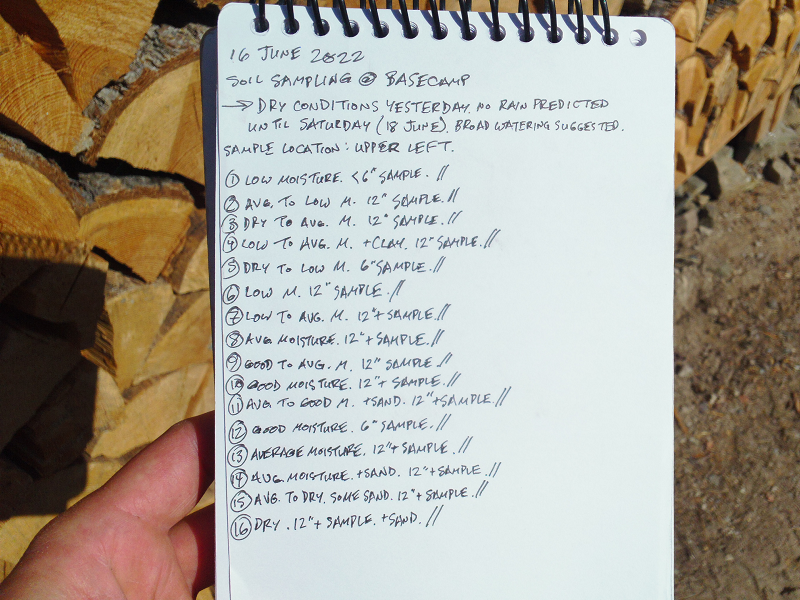 16 JUNE 2022
SOIL SAMPLING @ BASECAMP
→ DRY CONDITIONS YESTERDAY. NO RAIN PREDICTED
UNTIL SATURDAY (18 JUNE). BROAD WATERING SUGGESTED.
SAMPLE LOCATION: UPPER LEFT.
① LOW MOISTURE. <6" SAMPLE. //
② AVG. TO LOW M. 12" SAMPLE. //
③ DRY TO AVG. M. 12" SAMPLE. //
④ LOW TO AVG. M. +CLAY. 12" SAMPLE. //
⑤ DRY TO LOW M. 6" SAMPLE. //
⑥ LOW M. 12" SAMPLE. //
⑦ LOW TO AVG. M. 12"+ SAMPLE. //
⑧ AVG MOISTURE. 12"+ SAMPLE. //
⑨ GOOD TO AVG. M. 12" SAMPLE. //
⑩ GOOD MOISTURE. 12"+ SAMPLE. //
⑪ AVG TO GOOD M. +SAND. 12"+SAMPLE. //
⑫ GOOD MOISTURE. 6" SAMPLE. //
⑬ AVERAGE MOISTURE. 12"+ SAMPLE. //
⑭ AVG MOISTURE. +SAND. 12"+SAMPLE. //
⑮ AVG. TO DRY. SOME SAND. 12"+ SAMPLE. //
⑯ DRY. 12"+ SAMPLE. +SAND. //